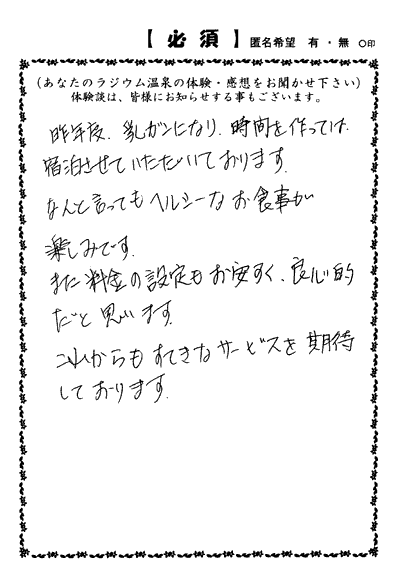 【 必 須 】 匿名希望 有 ・ 無 ○印
(あなたのラジウム温泉の体験・感想をお聞かせ下さい)
体験談は、皆様にお知らせする事もございます。
昨年度、乳ガンになり、時間を作っては
宿泊させていただいております。
なんと言ってもヘルシーなお食事が
楽しみです。
また料金の設定もお安すく、良心的
だと思います。
これからもすてきなサービスを期待
しております。